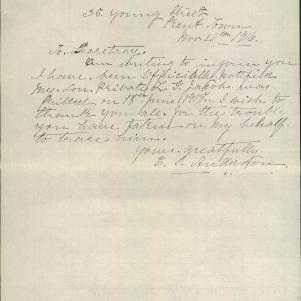 36. Young Street
Kent Town
Nov 20th 1916.
To Secretary.
Am writing to inform you
I have been Officially notified
My. Son. Private L. G. Jakobs was
Killed on 18th June 1915. I wish to
thank you all for the trouble
you have taken on my behalf
to trace him.
Yours. greatfully
E. S. Anderson.